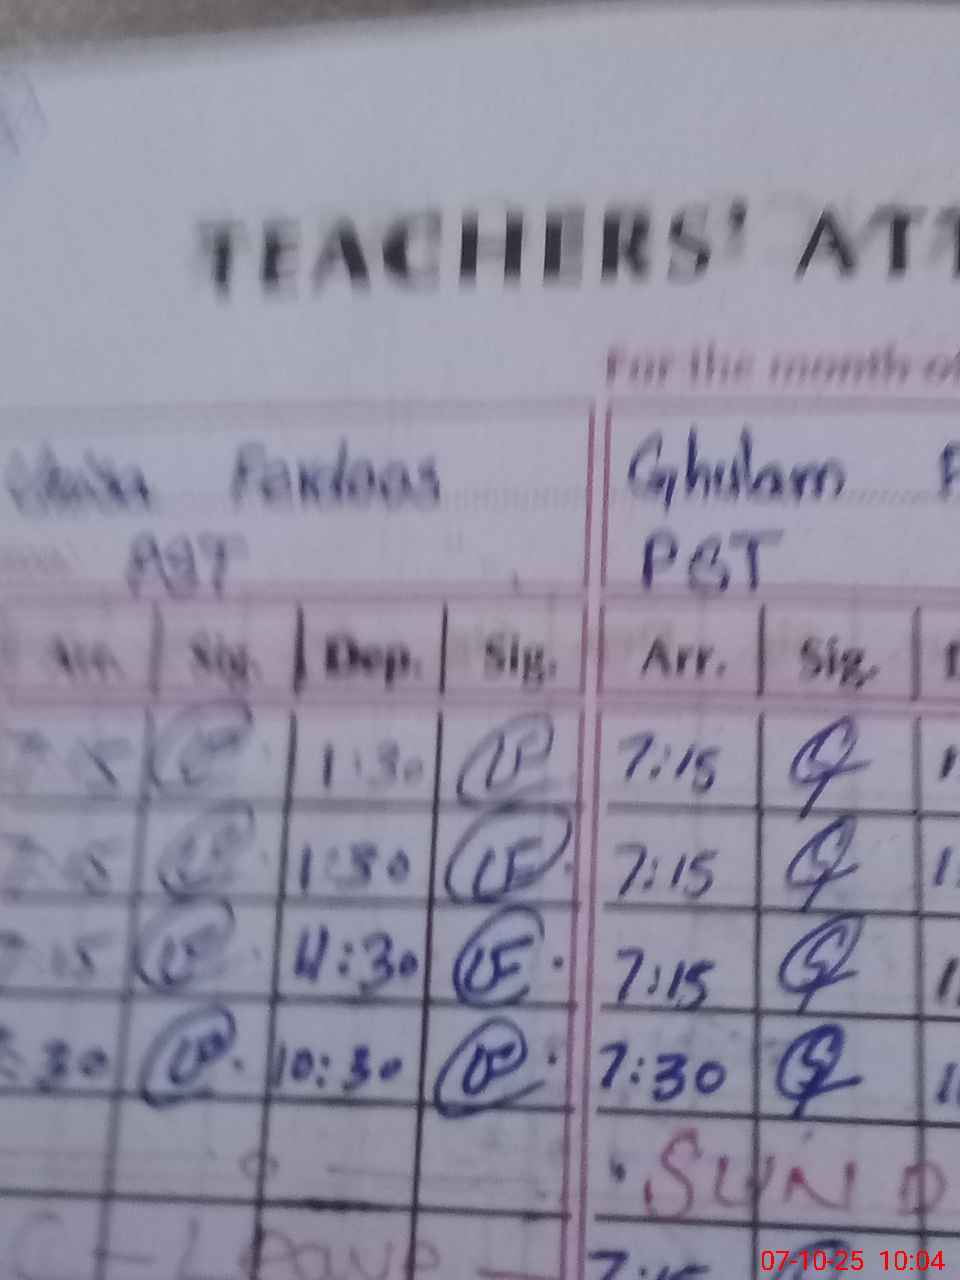 TEACHERS' ATT
For the month of
Ferdoos Ghulam
PST PST
Arr. Sig. Dep. Sig. Arr. Sig.
1:30 7:15
1:30 7:15
7:15 11:30 7:15
7:30 10:30 7:30
SUND
C-Leave 7:15
07-10-25 10:04